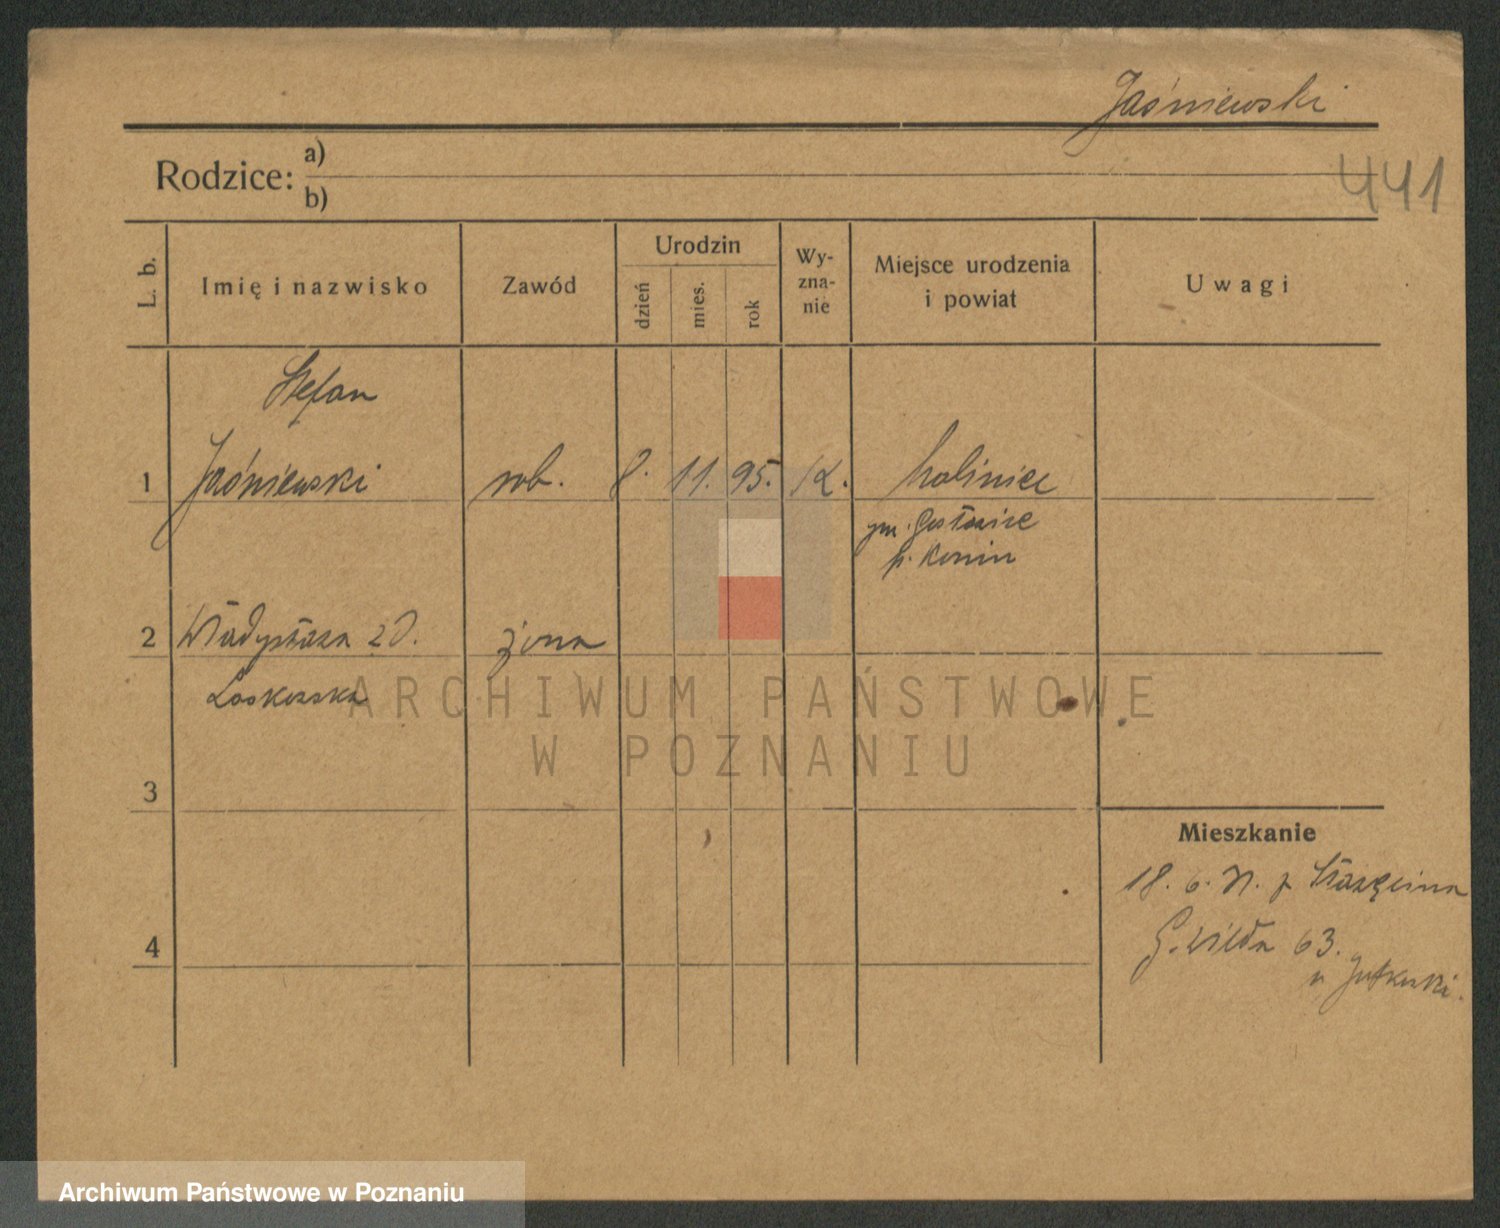 Jaśniewski
441
Rodzice: a)
b)
L. b.
Imię i nazwisko
Zawód
Urodzin
dzień
mies.
rok
Wy-
zna-
nie
Miejsce urodzenia
i powiat
Uwagi
Stefan
1 Jaśniewski rob. 8. 11. 95. K. Maliniec
gm. Gosławice
p. Konin
2 Władysława zD. żona
3
4
Mieszkanie
18. 6.
G. Wilda 63.
u
ARCHIWUM PAŃSTWOWE
W POZNANIU
Archiwum Państwowe w Poznaniu